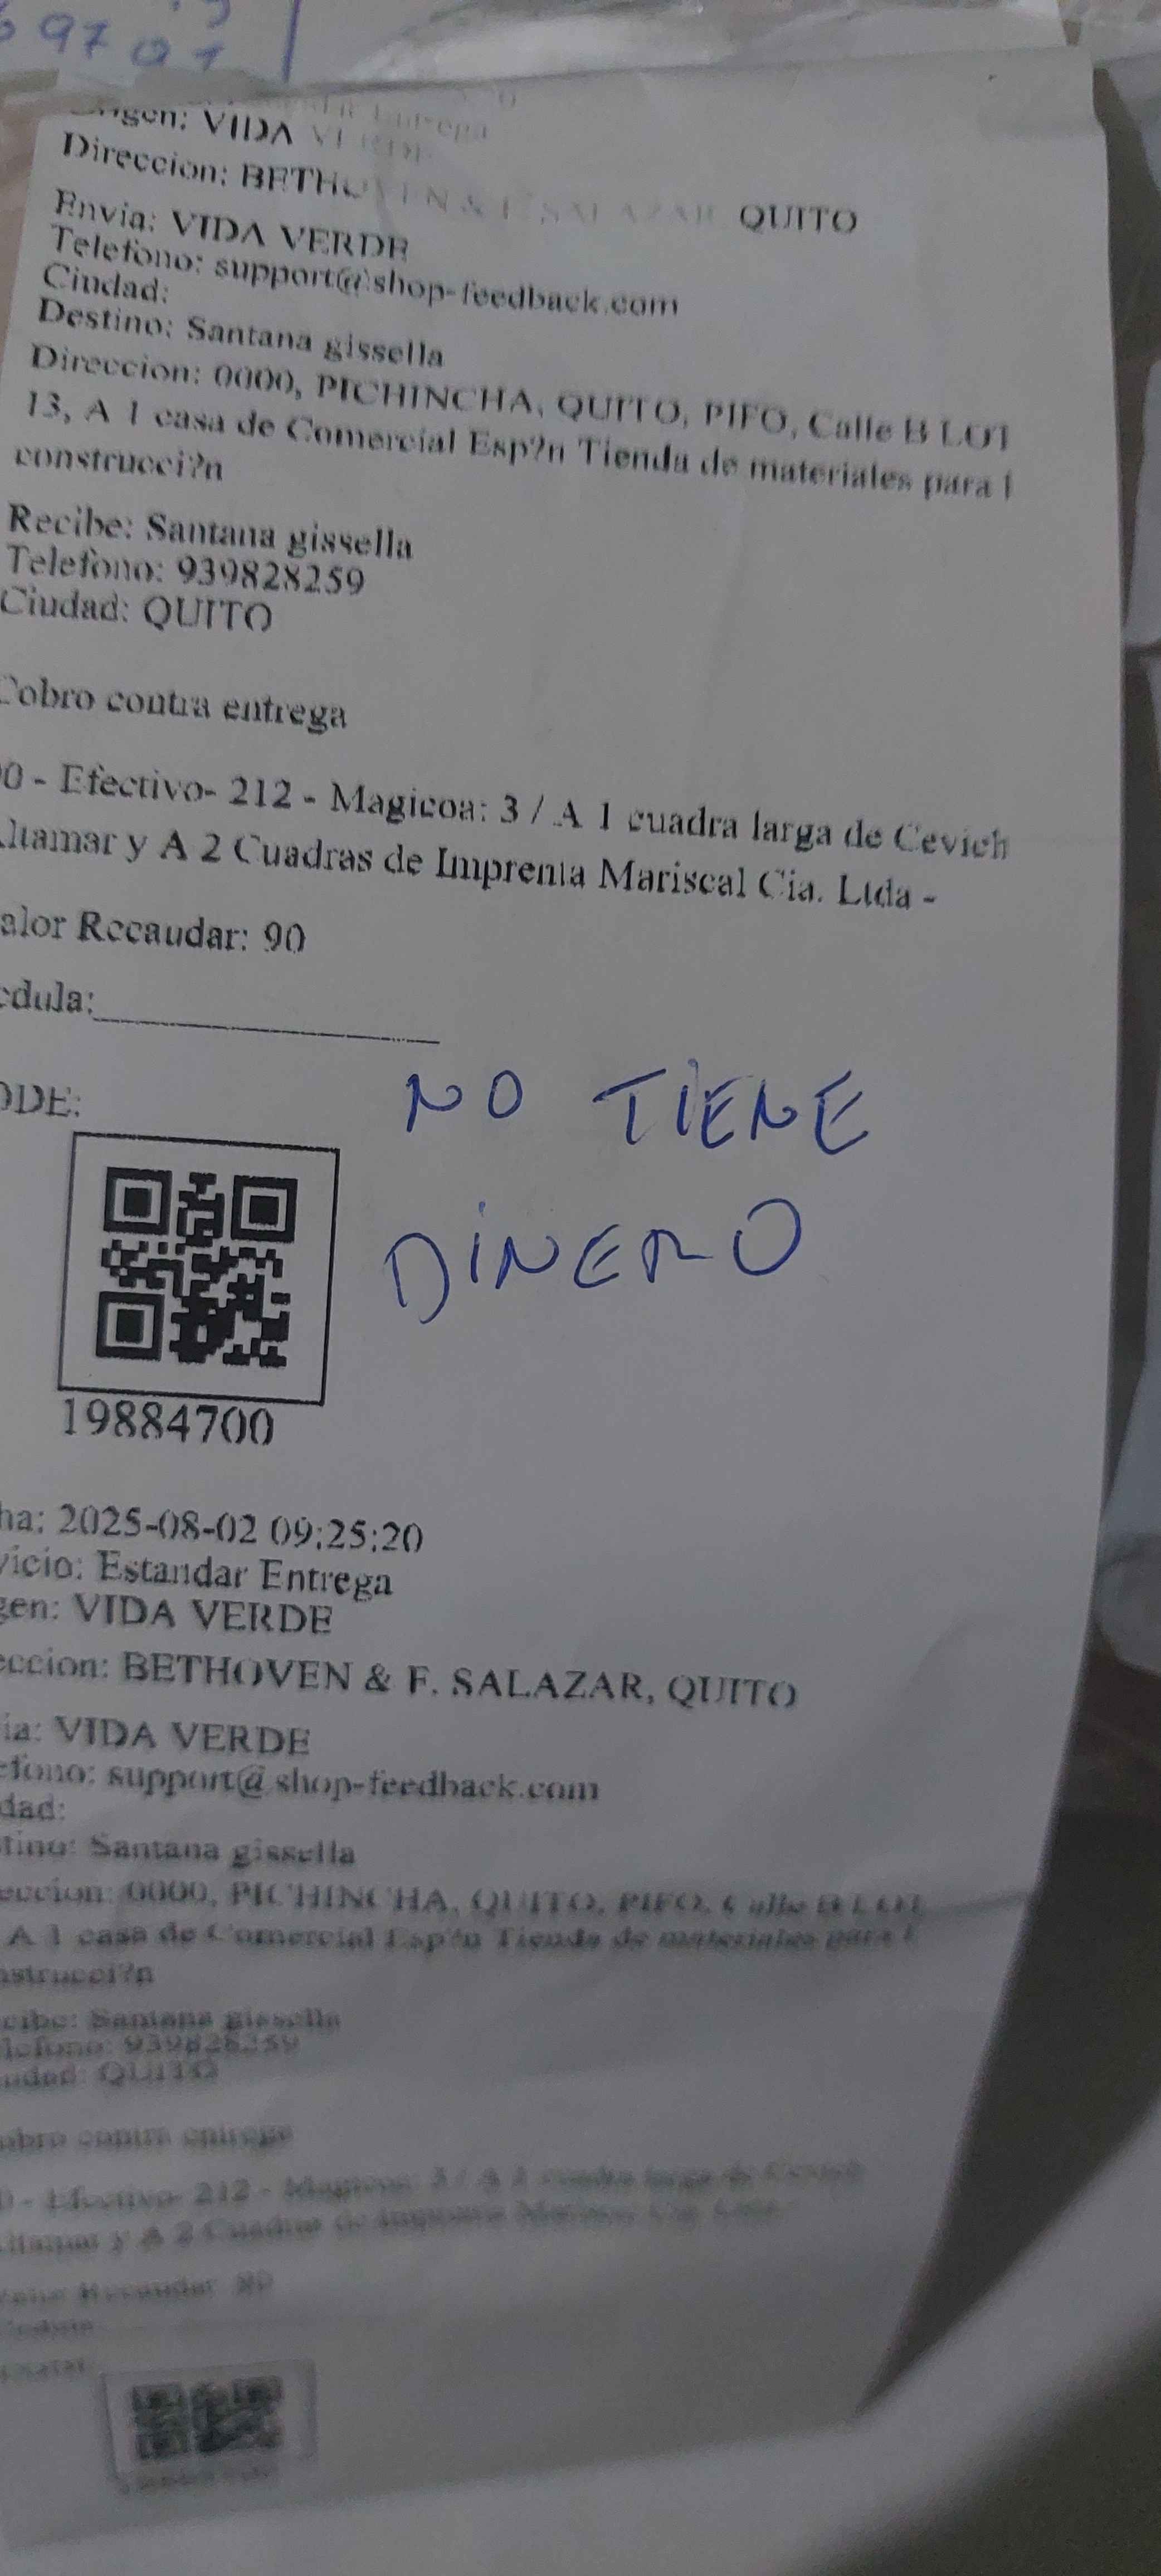 69701
Entrega
Origen: VIDA VERDE
Direccion: BETHOVEN & F. SALAZAR, QUITO
Envia: VIDA VERDE
Telefono: support@shop-feedback.com
Ciudad:
Destino: Santana gissella
Direccion: 0000, PICHINCHA, QUITO, PIFO, Calle B LOT
13, A 1 casa de Comercial Esp?n Tienda de materiales para l
construcci?n
Recibe: Santana gissella
Telefono: 939828259
Ciudad: QUITO
Cobro contra entrega
00 - Efectivo- 212 - Magicoa: 3 / A 1 cuadra larga de Cevich
Altamar y A 2 Cuadras de Imprenta Mariscal Cia. Ltda -
alor Recaudar: 90
edula:
ODE:
NO TIENE
DINERO
19884700
ha: 2025-08-02 09:25:20
vicio: Estandar Entrega
gen: VIDA VERDE
eccion: BETHOVEN & F. SALAZAR, QUITO
ia: VIDA VERDE
efono: support@shop-feedback.com
dad:
tino: Santana gissella
eccion: 0000, PICHINCHA, QUITO, PIFO, Calle B LOT
A 1 casa de Comercial Esp?n Tienda de materiales para l
nstrucci?n
cibe: Santana gissella
lefono: 939828259
udad: QUITO
obro contra entrega
0 - Efectivo- 212 - Magicoa: 3 / A 1 cuadra larga de Cevich
ltamar y A 2 Cuadras de Imprenta Mariscal Cia. Ltda
Valor Recaudar: 90